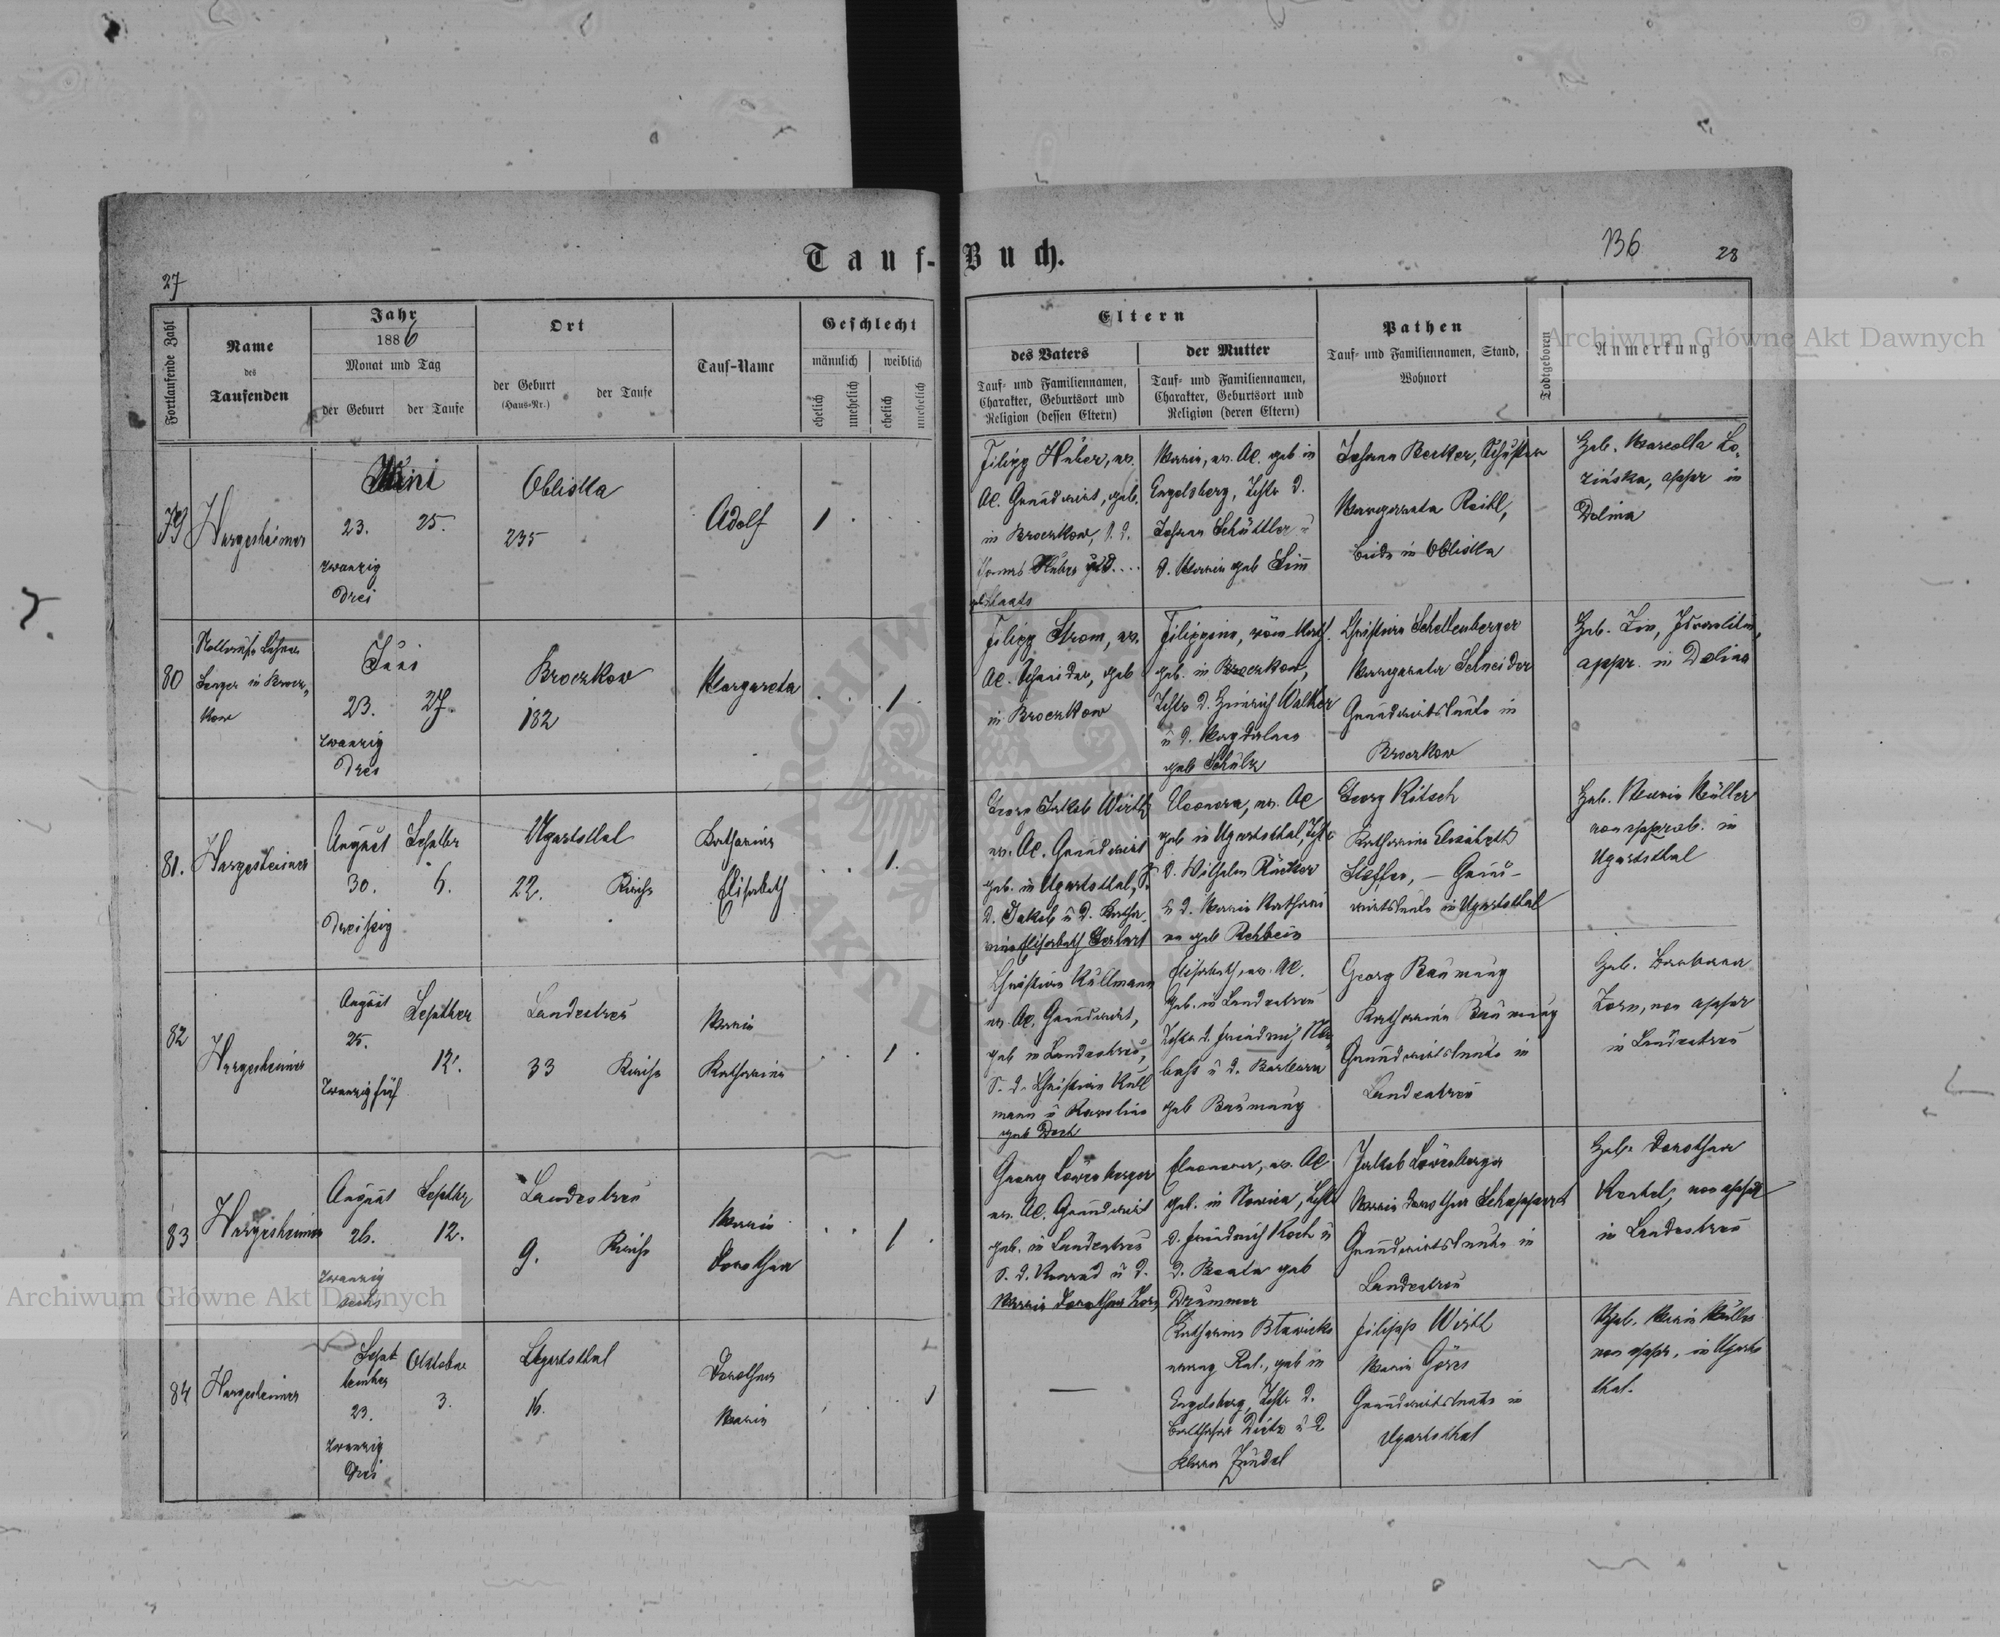 Tauf-Buch.
27
136
28
Fortlaufende Zahl
Name
des
Taufenden
Jahr
1886
Monat und Tag
der Geburt
der Taufe
Ort
der Geburt
(Haus-Nr.)
der Taufe
Tauf-Name
Geschlecht
männlich
weiblich
ehelich
unehelich
ehelich
unehelich
Eltern
des Vaters
Tauf- und Familiennamen,
Charakter, Geburtsort und
Religion (dessen Eltern)
der Mutter
Tauf- und Familiennamen,
Charakter, Geburtsort und
Religion (deren Eltern)
Pathen
Tauf- und Familiennamen, Stand,
Wohnort
Todtgeboren
Anmerkung
79
Hargesheimer
Juni
23.
25.
zwanzig
drei
Obliska
235
Adolf
1
Filipp Huber, ev.
AC. Grundwirt, geb.
in Broczkow, S. d.
Maria, ev. AC. geb in
Engelsberg, Tchtr d.
Johann Schüttler u
d. Maria geb
Johann Becker, Schuster
Margareta
beide in Obliska
Heb. Marcella
appr in
Dolina
80
Berger in Brocz-
kow
Juni
23.
27.
zwanzig
drei
Broczkow
182
Margareta
1
Filipp Strom, ev.
AC. Schneider, geb
in Broczkow
Filippine, röm. Kath.
geb. in Broczkow,
Tchtr d. Heinrich Walker
u d. Magdalena
geb Schulz
Christian Schellenberger
Margareta Schneider
Grundwirtsleute in
Broczkow
appr. in Dolina
81.
Hargesheimer
August
Septber
30.
6.
dreißig
Ugartsthal
22.
Kirche
Katharina
Elisabeth
1
Georg Jakob Wirth
ev. AC. Grundwirt
geb. in Ugartsthal, S.
d. Jakob u d. Katha-
rina Elisabeth
Eleonora, ev. AC
geb in Ugartsthal, Tchtr
d. Wilhelm
u d. Maria Kathari
na geb Rehbein
Georg Ritsch
Katharina Elisabeth
Steffen, – Grund-
wirtsleute in Ugartsthal
Heb. Maria Müller
non approb. in
Ugartsthal
82
Hargesheimer
August
Septber
25.
12.
Zwanzigfünf
Landestreu
33
Kirche
Maria
Katharina
1
Christian Kullmann
ev. AC. Grundwirt,
geb in Landestreu,
S. d. Christian Kull
mann u Karolina
Elisabeth, ev. AC.
geb. in Landestreu
Tchtr d. Friedrich
u d. Barbara
geb Baumung
Georg Baumung
Katharina Baumung
Grundwirtsleute in
Landestreu
Heb. Barbara
Zorn, non appr
in Landestreu
83
Hargesheimer
August
Septbr
26.
12.
Zwanzig
sechs
Landestreu
9.
Kirche
Maria
Dorothea
1
Georg Löwenberger
ev. AC. Grundwirt
geb. in Landestreu
S. d. Konrad u d.
Maria Dorothea Zorn
Eleonora, ev. AC
geb. in Nowica, Tchtr
d. Friedrich Koch u
d. Beata geb
Drummer
Jakob Löwenberger
Maria Dorothea Schappert
Grundwirtsleute in
Landestreu
Heb. Dorothea
non appr
in Landestreu
84
Hargesheimer
Sept
tember
Oktober
23.
3.
zwanzig
drei
Ugartsthal
16.
Dorothea
Maria
1
—
Katharina
geb in
Engelsberg, Tchtr d.
Balthasar Dietz u d
Klara Zündel
Filipp Wirth
Maria Göres
Grundwirtsleute in
Ugartsthal
Heb. Maria Müller
non appr, in Ugarts
thal.
Archiwum Główne Akt Dawnych
Archiwum Główne Akt Dawnych